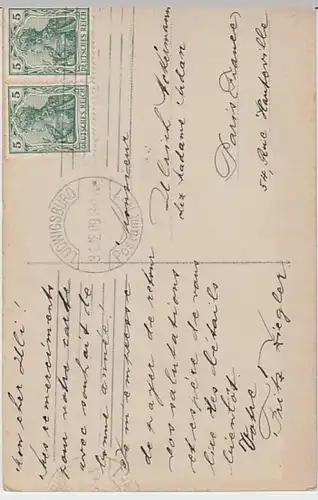 5
DEUTSCHES REICH
5
5
DEUTSCHES REICH
5
LUDWIGSBURG
31.12.09
Monsieur
Ulrich Ackermann
dix Madame
Paris, France
54, Rue Hauteville
Mon cher Uli!
Mes remerciments
pour votre carte
avec souhait de
bonne année!
Je m'empresse
de payer de retour
vos salutations
et espère de vous
lire des détails
bientôt.
Votre
Fritz Ziegler.